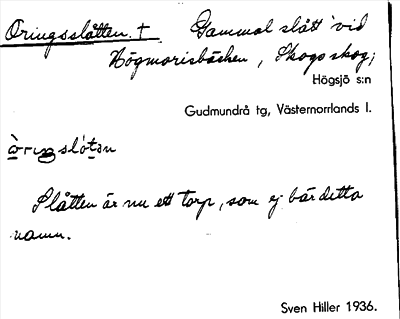 Öringsslåtten. † Gammal slått vid
Högmorisbäcken, Skogs skog;
Högsjö s:n
Gudmundrå tg, Västernorrlands l.
Slåtten är nu ett torp, som ej bär detta
namn.
Sven Hiller 1936.